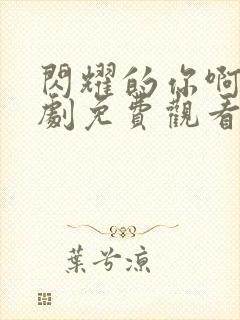 閃耀的你啊
劇免費觀看
葉兮涼